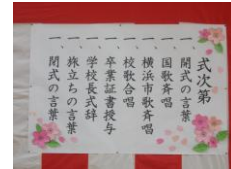 式次第
一、開式の言葉
一、国歌斉唱
一、横浜市歌斉唱
一、校歌合唱
一、卒業証書授与
一、学校長式辞
一、旅立ちの言葉
一、閉式の言葉